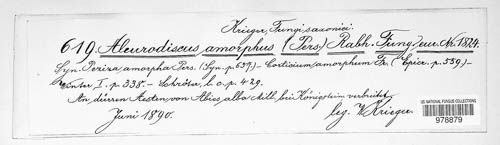 Krieger, Fungi saxonici.
619. Aleurodiscus amorphus (Pers) Rabh. Fung. eur. Nr. 1824.
Syn. Peziza amorpha Pers. (Syn. p. 657) - Corticium amorphum Fr. (Epicr. p. 559) -
Winter I. p. 338. - Schröter, l. c. p. 429.
An dürren Aesten von Abies alba Mill. bei Königstein verbreitet.
Juni 1890. leg. W. Krieger.
US NATIONAL FUNGUS COLLECTIONS
978879